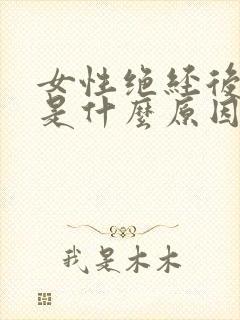 女性绝经後
是什麼原因
我是木木